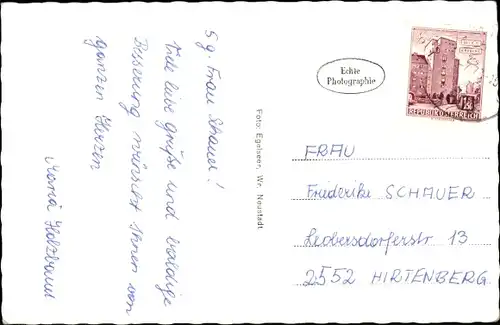 S.g. Frau Schauer!
Viele liebe Grüße und baldige
Besserung wünscht Ihnen von
ganzen Herzen
Maria Holzbauer
Foto: Egelseer, Wr. Neustadt
Echte
Photographie
REPUBLIK ÖSTERREICH
FRAU
Friederike SCHAUER
Leobersdorferstr 13
2552 HIRTENBERG